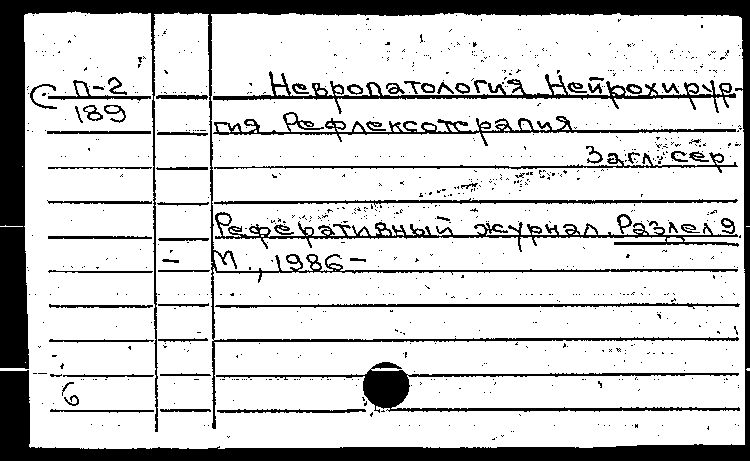 С П-2 Невропатология. Нейрохирур-
189
гия. Рефлексотерапия
Загл. сер.
Реферативный журнал. Раздел 9
– М., 1986–
6